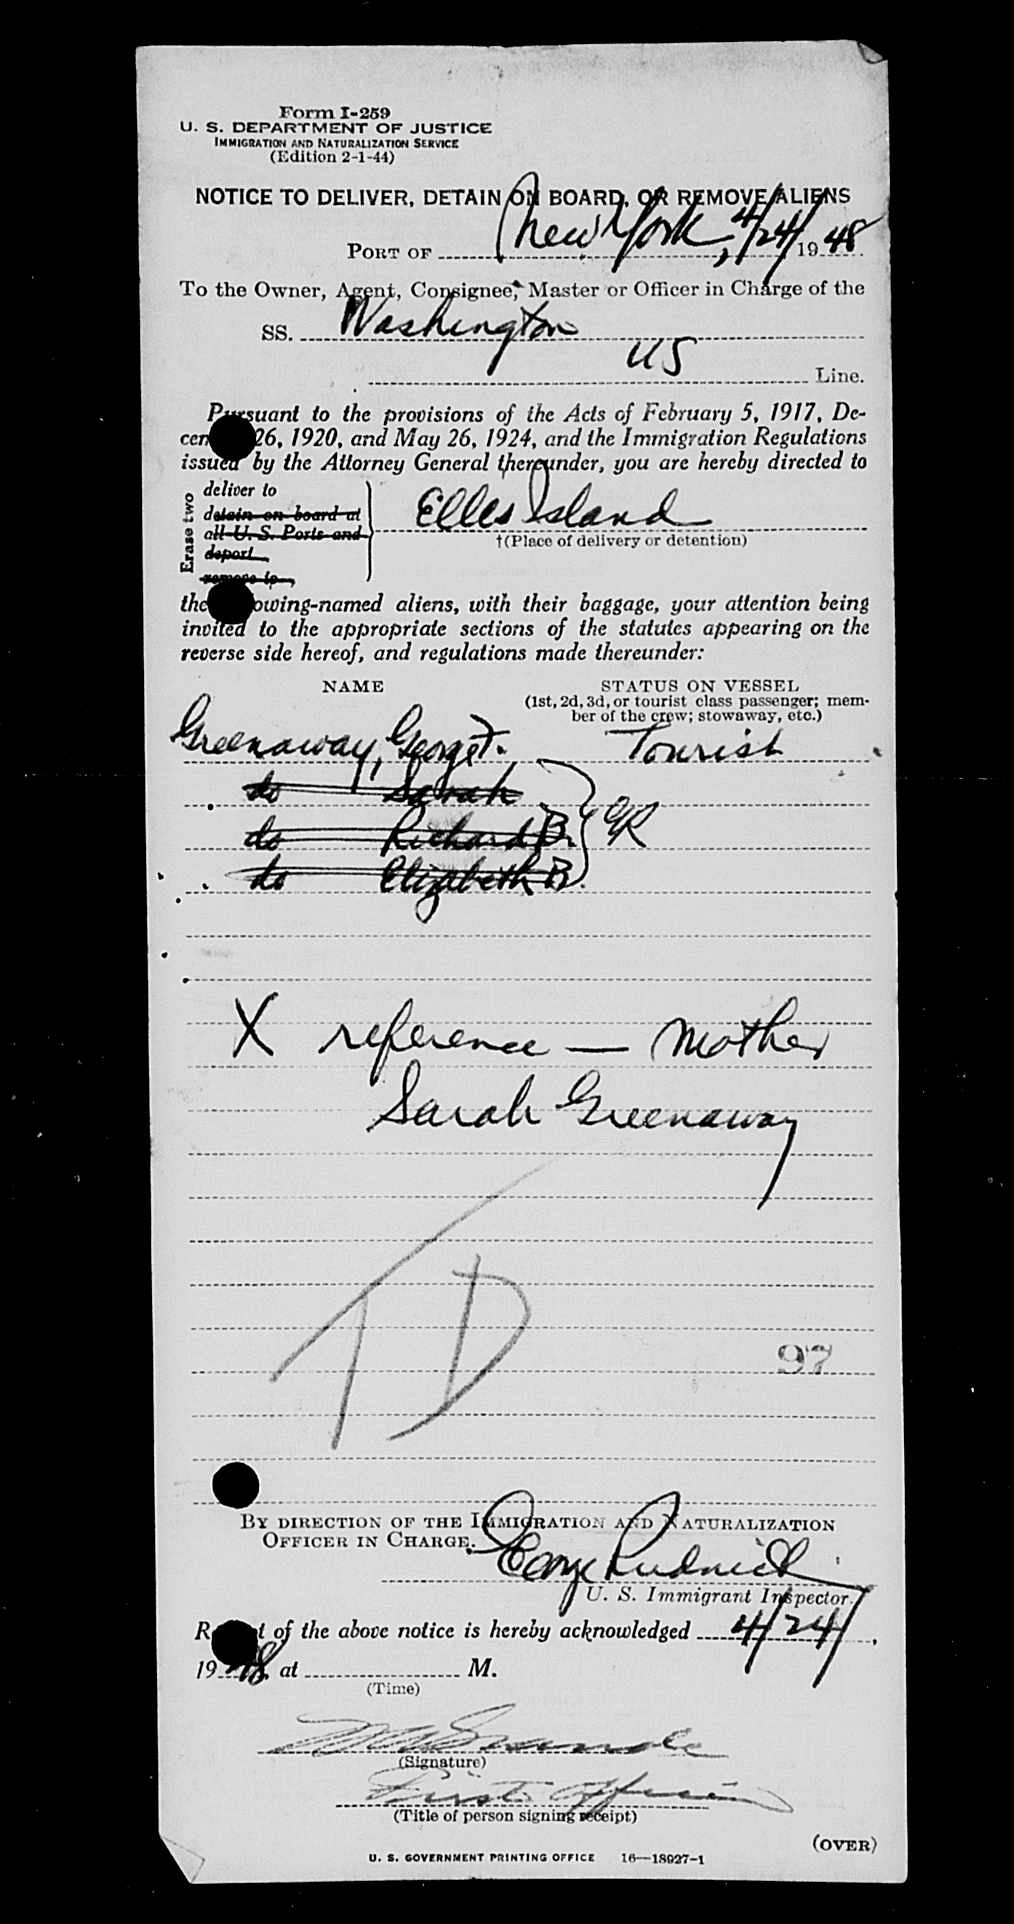 Form I-259
U. S. DEPARTMENT OF JUSTICE
IMMIGRATION AND NATURALIZATION SERVICE
(Edition 2-1-44)
NOTICE TO DELIVER, DETAIN ON BOARD, OR REMOVE ALIENS
PORT OF New York, 4/24/ 19 48
To the Owner, Agent, Consignee, Master or Officer in Charge of the
SS. Washington
US Line.
Pursuant to the provisions of the Acts of February 5, 1917, De-
cem 26, 1920, and May 26, 1924, and the Immigration Regulations
issued by the Attorney General thereunder, you are hereby directed to
Erase two
deliver to
detain on board at
all U. S. Ports and
deport
remove to
Elles Island
†(Place of delivery or detention)
the owing-named aliens, with their baggage, your attention being
invited to the appropriate sections of the statutes appearing on the
reverse side hereof, and regulations made thereunder:
NAME STATUS ON VESSEL
(1st, 2d, 3d, or tourist class passenger; mem-
ber of the crew; stowaway, etc.)
Greenaway, George T. Tourist
do Sarah
do Richard B. GR
do Elizabeth B.
X reference — Mother
Sarah Greenaway
TD
97
BY DIRECTION OF THE IMMIGRATION AND NATURALIZATION
OFFICER IN CHARGE.
George Rudnick
U. S. Immigrant Inspector.
R t of the above notice is hereby acknowledged 4/24/,
19 48, at M.
(Time)
(Signature)
First Officer
(Title of person signing receipt)
(OVER)
U. S. GOVERNMENT PRINTING OFFICE 16—18927-1